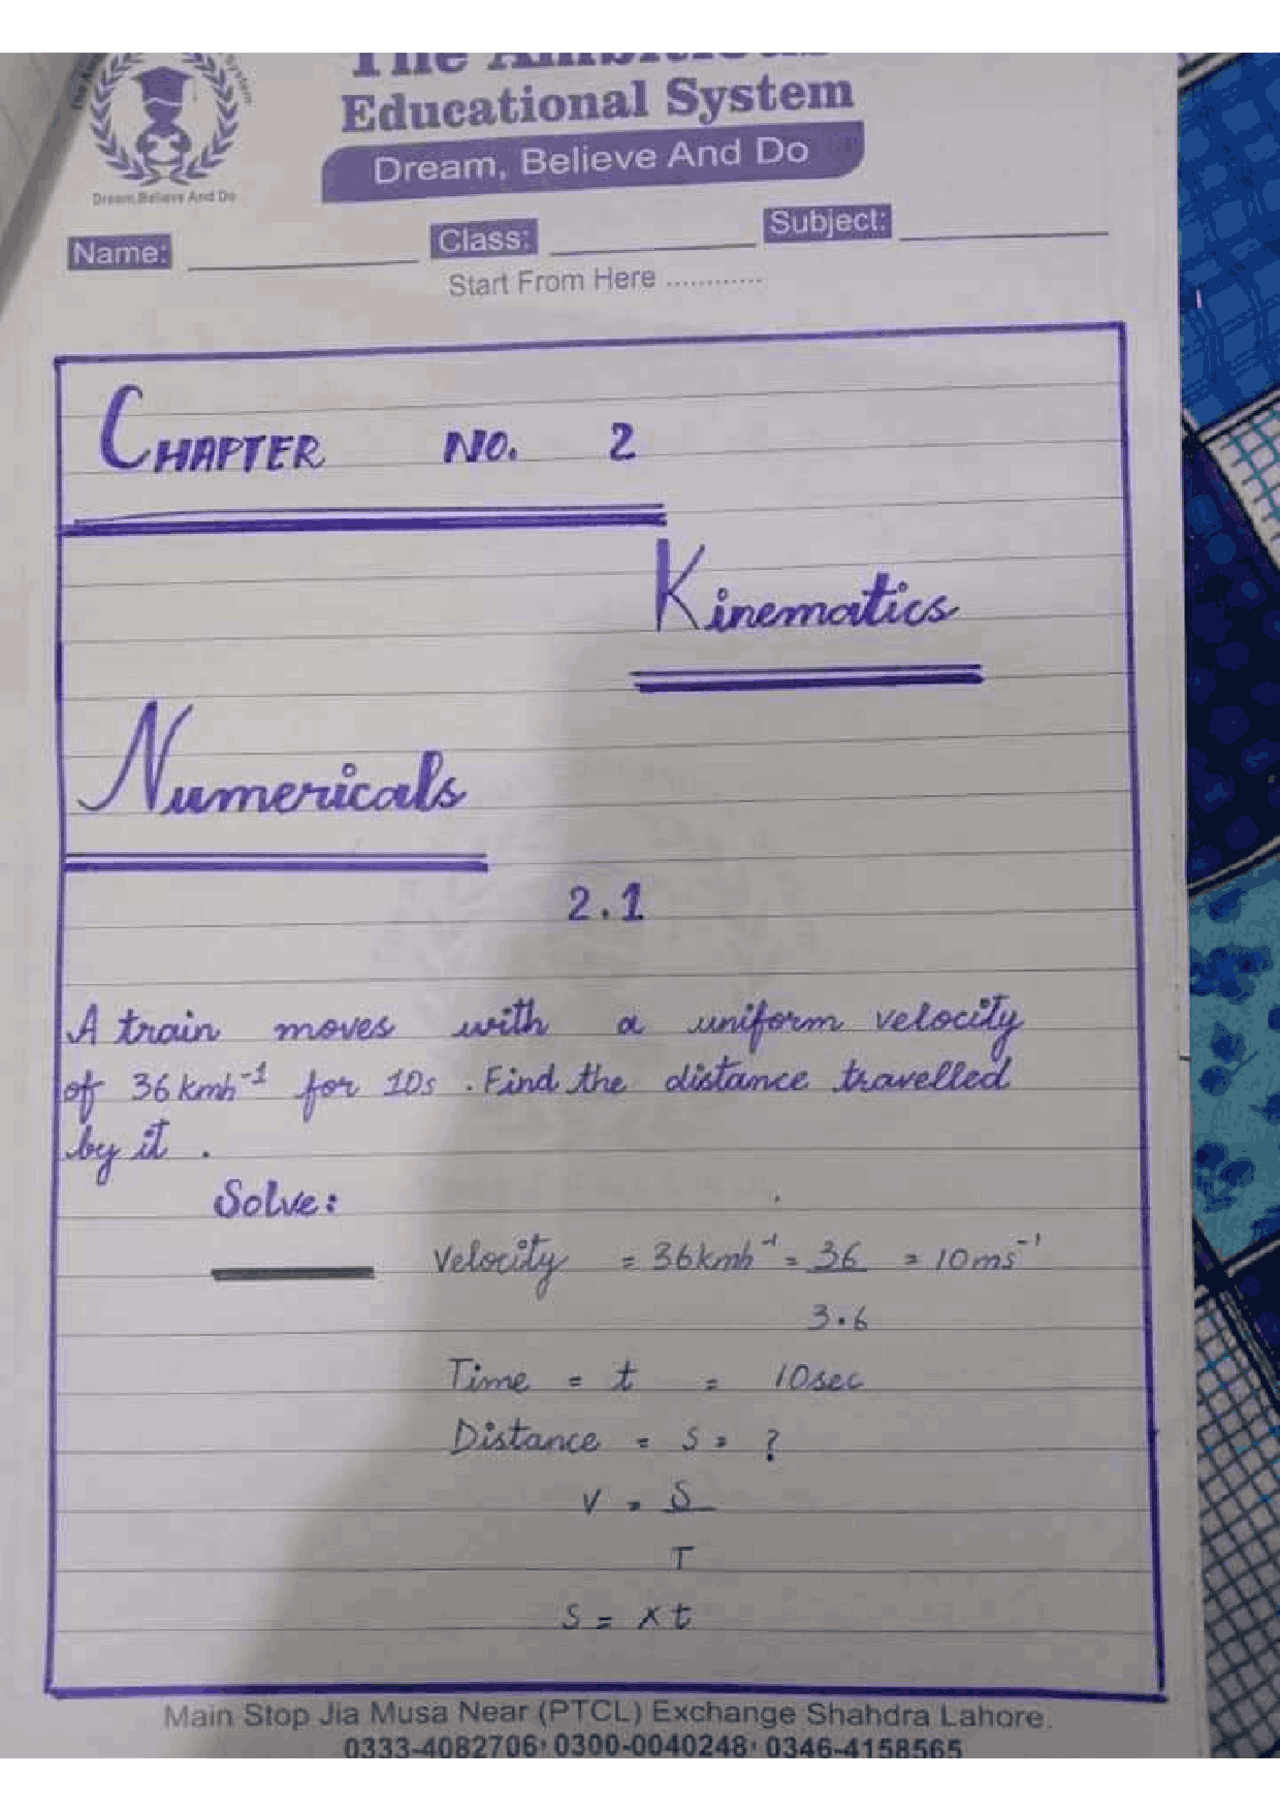 The Ambitious
Educational System
Dream, Believe And Do
Dream, Believe And Do
Name: Class: Subject:
Start From Here ............
CHAPTER NO. 2
Kinematics
Numericals
2.1
A train moves with a uniform velocity
of 36 kmh⁻¹ for 10s . Find the distance travelled
by it .
Solve:
Velocity = 36kmh⁻¹ = 36 = 10ms⁻¹
3.6
Time = t = 10sec
Distance = S = ?
V = S
T
S = x t
Main Stop Jia Musa Near (PTCL) Exchange Shahdra Lahore.
0333-4082706, 0300-0040248, 0346-4158565